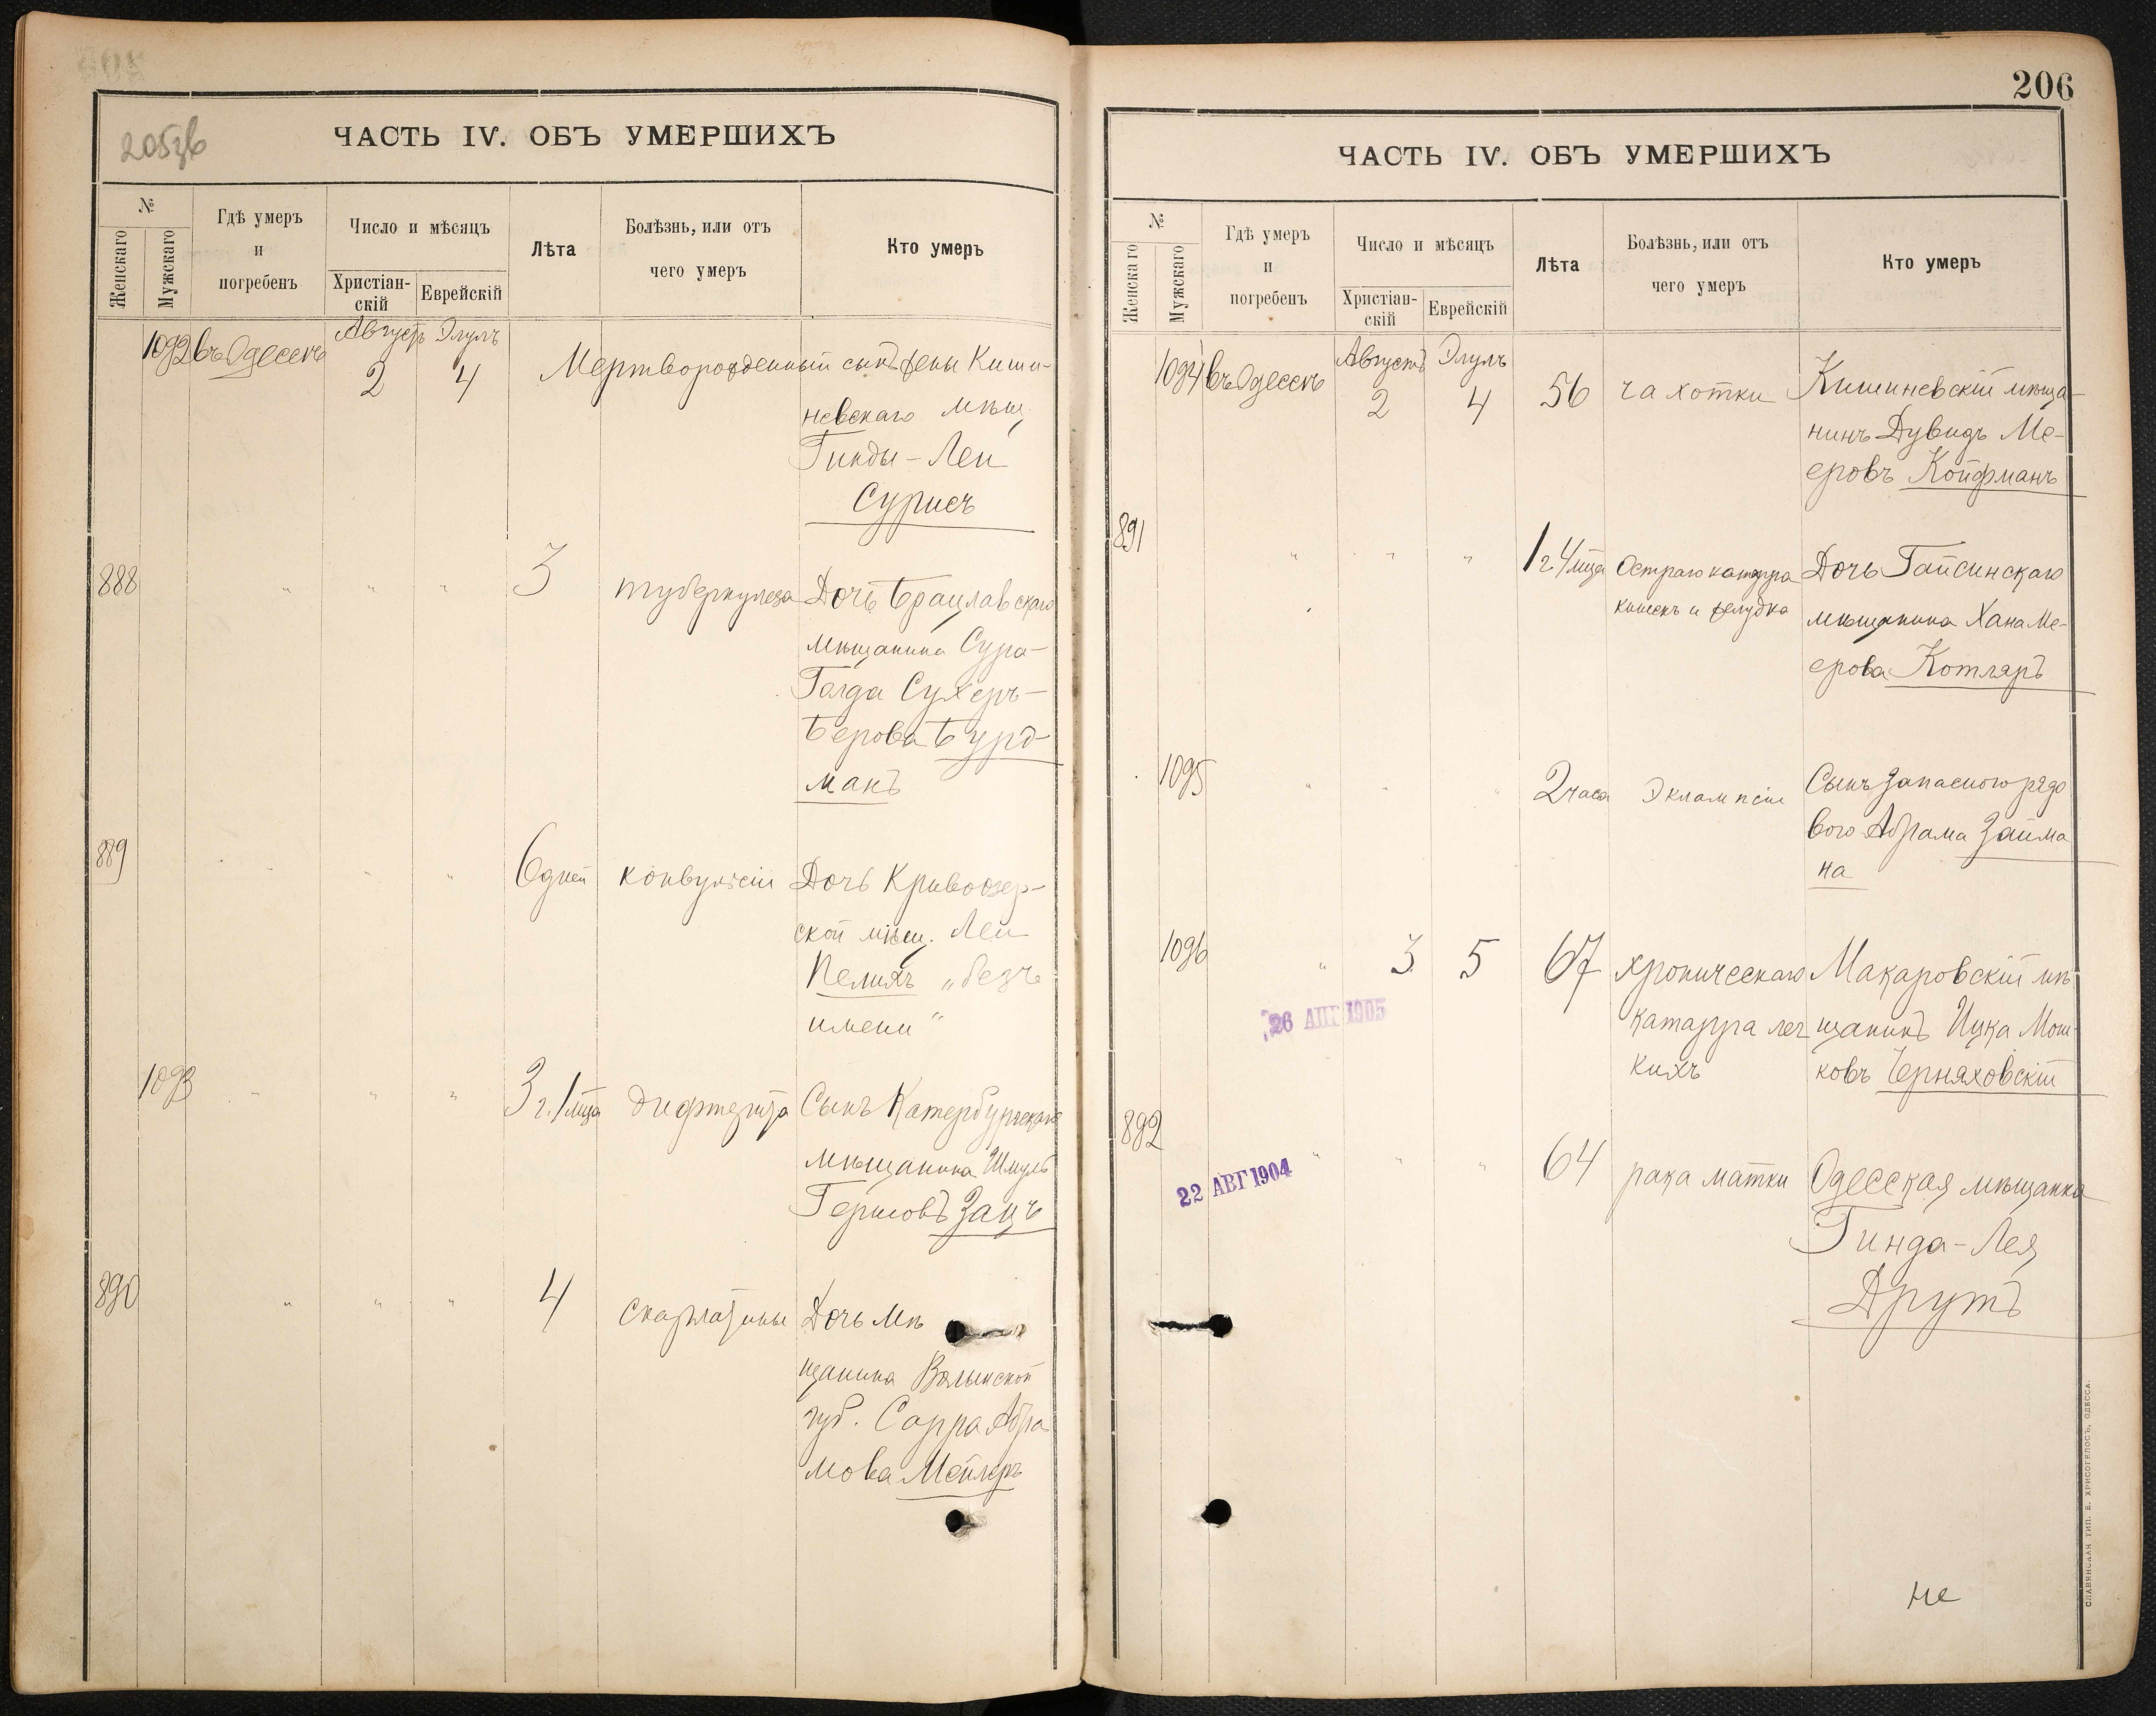 205зв
ЧАСТЬ IV. ОБЪ УМЕРШИХЪ
№
Женскаго
Мужскаго
Гдѣ умеръ
и
погребенъ
Число и мѣсяцъ
Христіан-
скій
Еврейскій
Лѣта
Болѣзнь, или отъ
чего умеръ
Кто умеръ
Августъ Элулъ
1092 въ Одессѣ 2 4 Мертворожденный сынъ жены Киши-
невскаго мѣщ
Гинды-Леи
Сурисъ
888 " " " 3 туберкулеза Дочь Брацлавскаго
мѣщанина Сура-
Голда Сухеръ-
Берова Бурд-
манъ
889 " " " 6 дней конвульсіи Дочь Кривоозер-
ской мѣщ. Леи
Пелихъ „безъ
имени"
1093 " " " 3 г. 1 мца дифтерита Сынъ Катербургскаго
мѣщанина Шмуль
Гершовъ Зацъ
890 " " " 4 скарлатины Дочь мѣ
щанина Волынской
губ. Сарра Абра
мова Мейлеръ
206
ЧАСТЬ IV. ОБЪ УМЕРШИХЪ
№
Женскаго
Мужскаго
Гдѣ умеръ
и
погребенъ
Число и мѣсяцъ
Христіан-
скій
Еврейскій
Лѣта
Болѣзнь, или отъ
чего умеръ
Кто умеръ
Августъ Элулъ
1094 въ Одессѣ 2 4 56 чахотки Кишиневскій мѣща-
нинъ Дувидъ Ме-
еровъ Койфманъ
891 " " " 1 г. 4 мца Остраго катарра Дочь Гайсинскаго
кишекъ и желудка мѣщанина Хана Ме-
ерова Котляръ
1095 " " " 2 часа Эклампсіи Сынъ запасного рядо
вого Абрама Займа
на
1096 " 3 5 67 хроническаго Макаровскій мѣ
26 АПР 1905
катарра лег щанинъ Ицка Мош-
кихъ ковъ Черняховскій
892 " " " 64 рака матки Одесская мѣщанка
22 АВГ 1904
Гинда-Лея
Друтъ
не
СЛАВЯНСКАЯ ТИП. Е. ХРИСОГЕЛОСЪ, ОДЕССА.